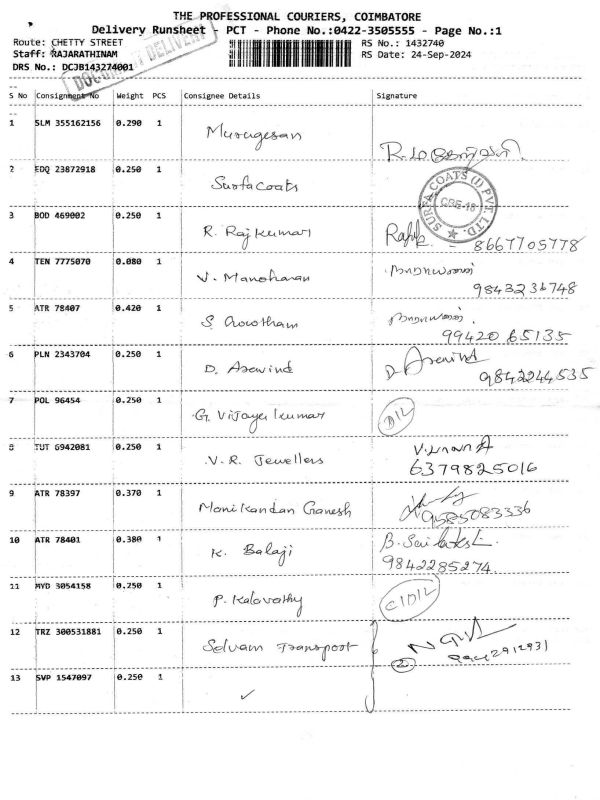 THE PROFESSIONAL COURIERS, COIMBATORE
Delivery Runsheet - PCT - Phone No.:0422-3505555 - Page No.:1
Route: CHETTY STREET RS No.: 1432740
Staff: RAJARATHINAM RS Date: 24-Sep-2024
DRS No.: DCJB143274001
DOCUMENT DELIVERY
S No Consignment No Weight PCS Consignee Details Signature
1 SLM 355162156 0.290 1 Murugesan
2 EDQ 23872918 0.250 1 Surfacoats
SURFA COATS (I) PVT. LTD. CBE-18
3 BOD 469002 0.250 1 R. Rajkumar Rafik - 8667705778
4 TEN 7775070 0.080 1 V. Manoharan
9843236748
5 ATR 78407 0.420 1 S. Gowtham
99420 65135
6 PLN 2343704 0.250 1 D. Aravind D. Aravind
9842244535
7 POL 96454 0.250 1 G. Vijaya kumar D/L
8 TUT 6942081 0.250 1 V.R. Jewellers
6379825016
9 ATR 78397 0.370 1 Manikandan Ganesh
9585083336
10 ATR 78401 0.380 1 K. Balaji
9842285274
11 MYD 3054158 0.250 1 P. Kalavathy C/D/L
12 TRZ 300531881 0.250 1 Selvam Transport
2
13 SVP 1547097 0.250 1 ✓